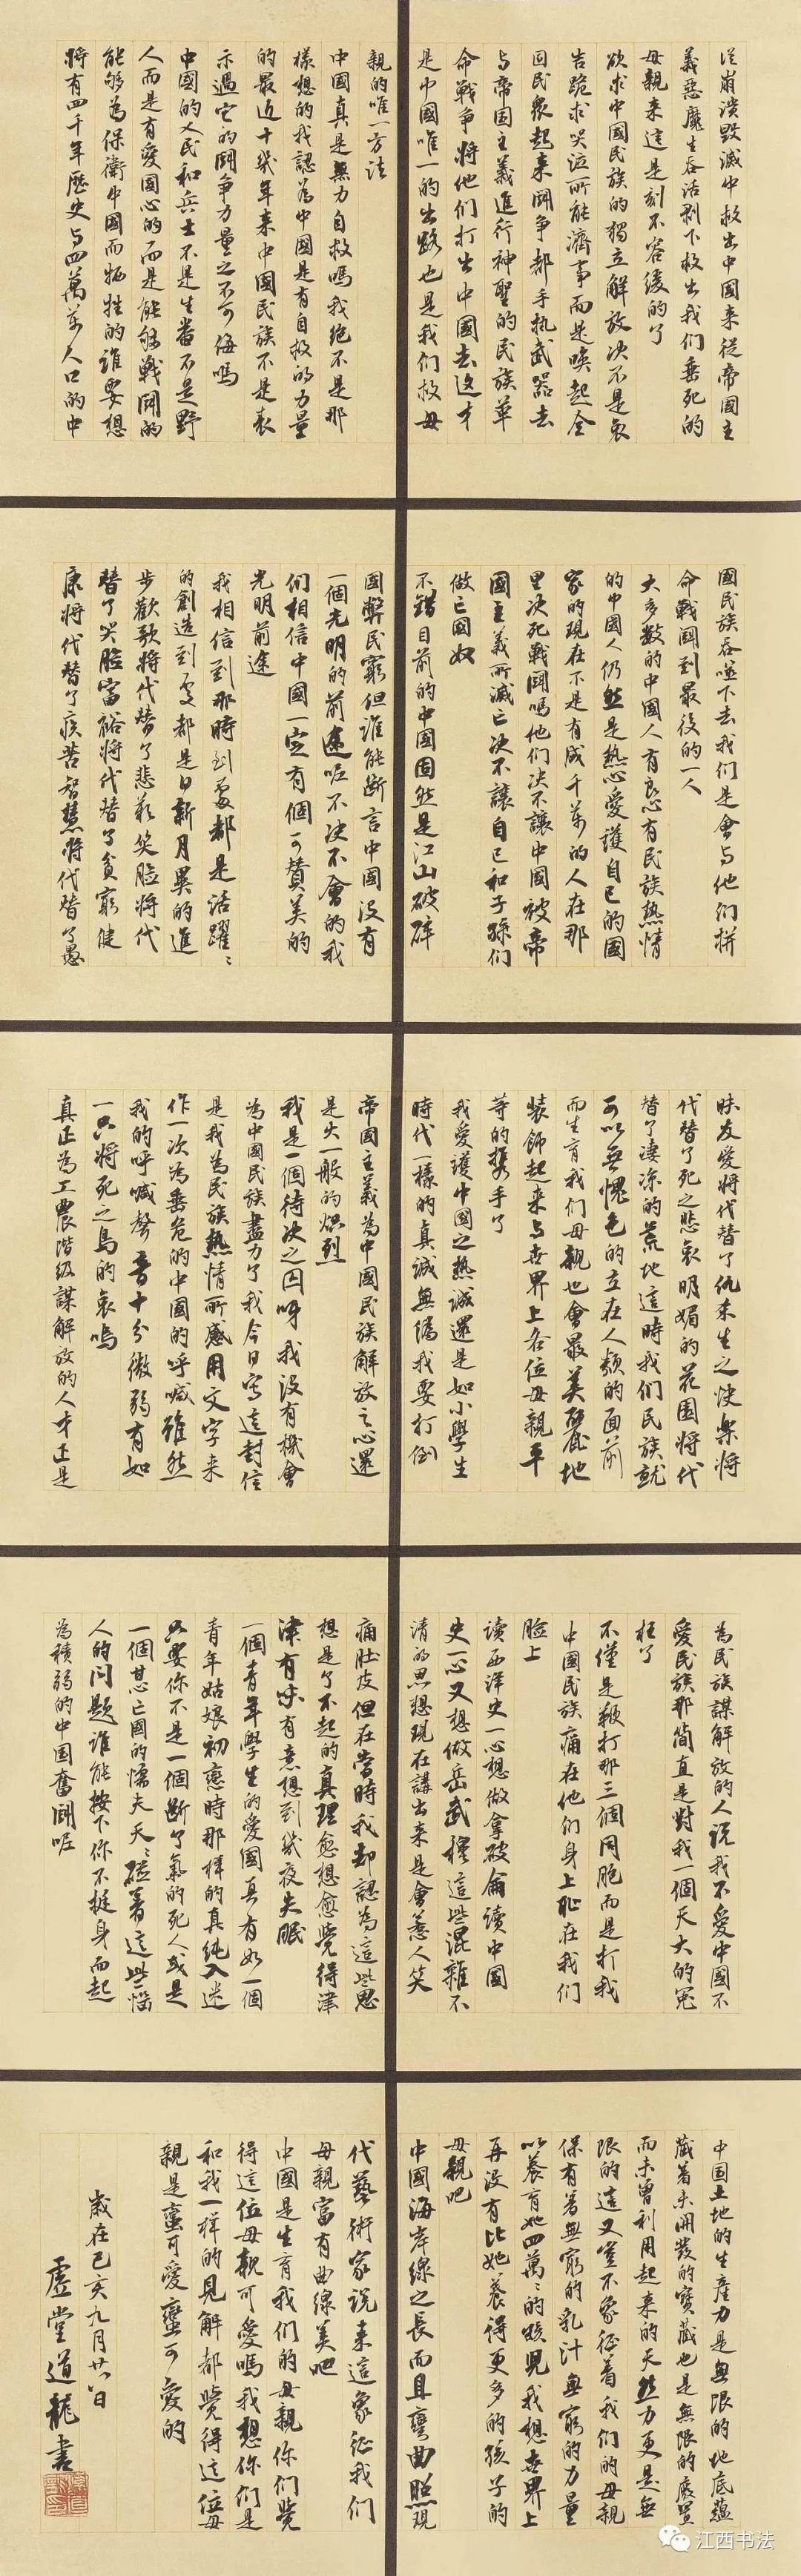 从崩溃毁滅中救出中國来從帝國主
義惡魔生吞活剥下救出我们垂死的
母親来這是刻不容缓的了
欲求中國民族的獨立解放决不是哀
告跪求哭泣所能濟事而是唤起全
回民衆起来鬪争都手执武器去
与帝国主義進行神聖的民族革
命戰争将他们打出中國去这才
是中國唯一的出路也是我们救母
親的唯一方法
中國真是無力自救嗎我绝不是那
樣想的我認为中國是有自救的力量
的最近十几年来中國民族不是表
示過它的鬪争力量之不可侮嗎
中國的人民和兵士不是生番不是野
人而是有愛國心的而是能够戰鬪的
能够為保衛中國而牺牲的谁要想
将有四千年歷史与四萬万人口的中
國民族吞噬下去我们是會与他们拼
命戰鬪到最後的一人
大多數的中國人有良心有民族熱情
的中國人仍然是熱心愛護自己的國
家的現在不是有成千萬的人在那
里决死戰鬪嗎他们决不讓中國被帝
國主義所滅亡决不讓自己和子孫们
做亡國奴
不錯目前的中國固然是江山破碎
國弊民窮但谁能断言中國没有
一個光明的前途呢不决不會的我
们相信中國一定有個可賛美的
光明前途
我相信到那時到處都是活躍々
的創造到處都是日新月異的進
步歡歌将代替了悲歎笑脸将代
替了哭脸富裕将代替了貧窮健
康将代替了疾苦智慧将代替了愚
昧友愛将代替了仇杀生之快樂将
代替了死之悲哀明媚的花園将代
替了凄凉的荒地這時我们民族就
可以無愧色的立在人類的面前
而生育我们母親也會最美麗地
装飾起来与世界上各位母親平
等的携手了
我愛護中國之熱诚還是如小學生
時代一樣的真诚無偽我要打倒
帝國主義為中國民族解放之心還
是火一般的炽烈
我是一個待决之囚呀我没有機會
為中國民族盡力了我今日寫這封信
是我為民族熱情所感用文字来
作一次為垂危的中國的呼喊雖然
我的呼喊聲音十分微弱有如
一只将死之鸟的哀鳴
真正為工農階級謀解放的人才正是
為民族謀解放的人说我不爱中國不
愛民族那简直是對我一個天大的冤
枉了
不僅是鞭打那三個同胞而是打我
中國民族痛在他们身上耻在我们
脸上
讀西洋史一心想做拿破侖讀中國
史一心又想做岳武穆這些混雜不
清的思想現在講出来是會惹人笑
痛肚皮但在當時我却認为這些思
想是了不起的真理愈想愈覺得津
津有味有意想到几夜失眠
一個青年學生的愛國真有如一個
青年姑娘初戀時那样的真纯入迷
只要你不是一個断了氣的死人或是
一個甚心亡國的懦夫天々碰着這些惱
人的问题谁能按下你不挺身而起
为積弱的中国奮鬪呢
中国土地的生産力是無限的地底蕴
藏着未開發的寶藏也是無限的廢置
而未曾利用起来的天然力更是無
限的這又豈不象征着我们的母親
保有着無窮的乳汁無窮的力量
以養育她四萬々的孩兒我想世界上
再没有比她養得更多的孩子的
母親吧
中國海岸線之長而且彎曲照现
代藝術家说来這象征我们
母親富有曲線美吧
中國是生育我们的母親你们覺
得這位母親可愛嗎我想你们是
和我一样的見解都覺得這位母
親是蛮可愛蛮可愛的
歲在己亥九月廿八日
虚堂道龍書
江西书法